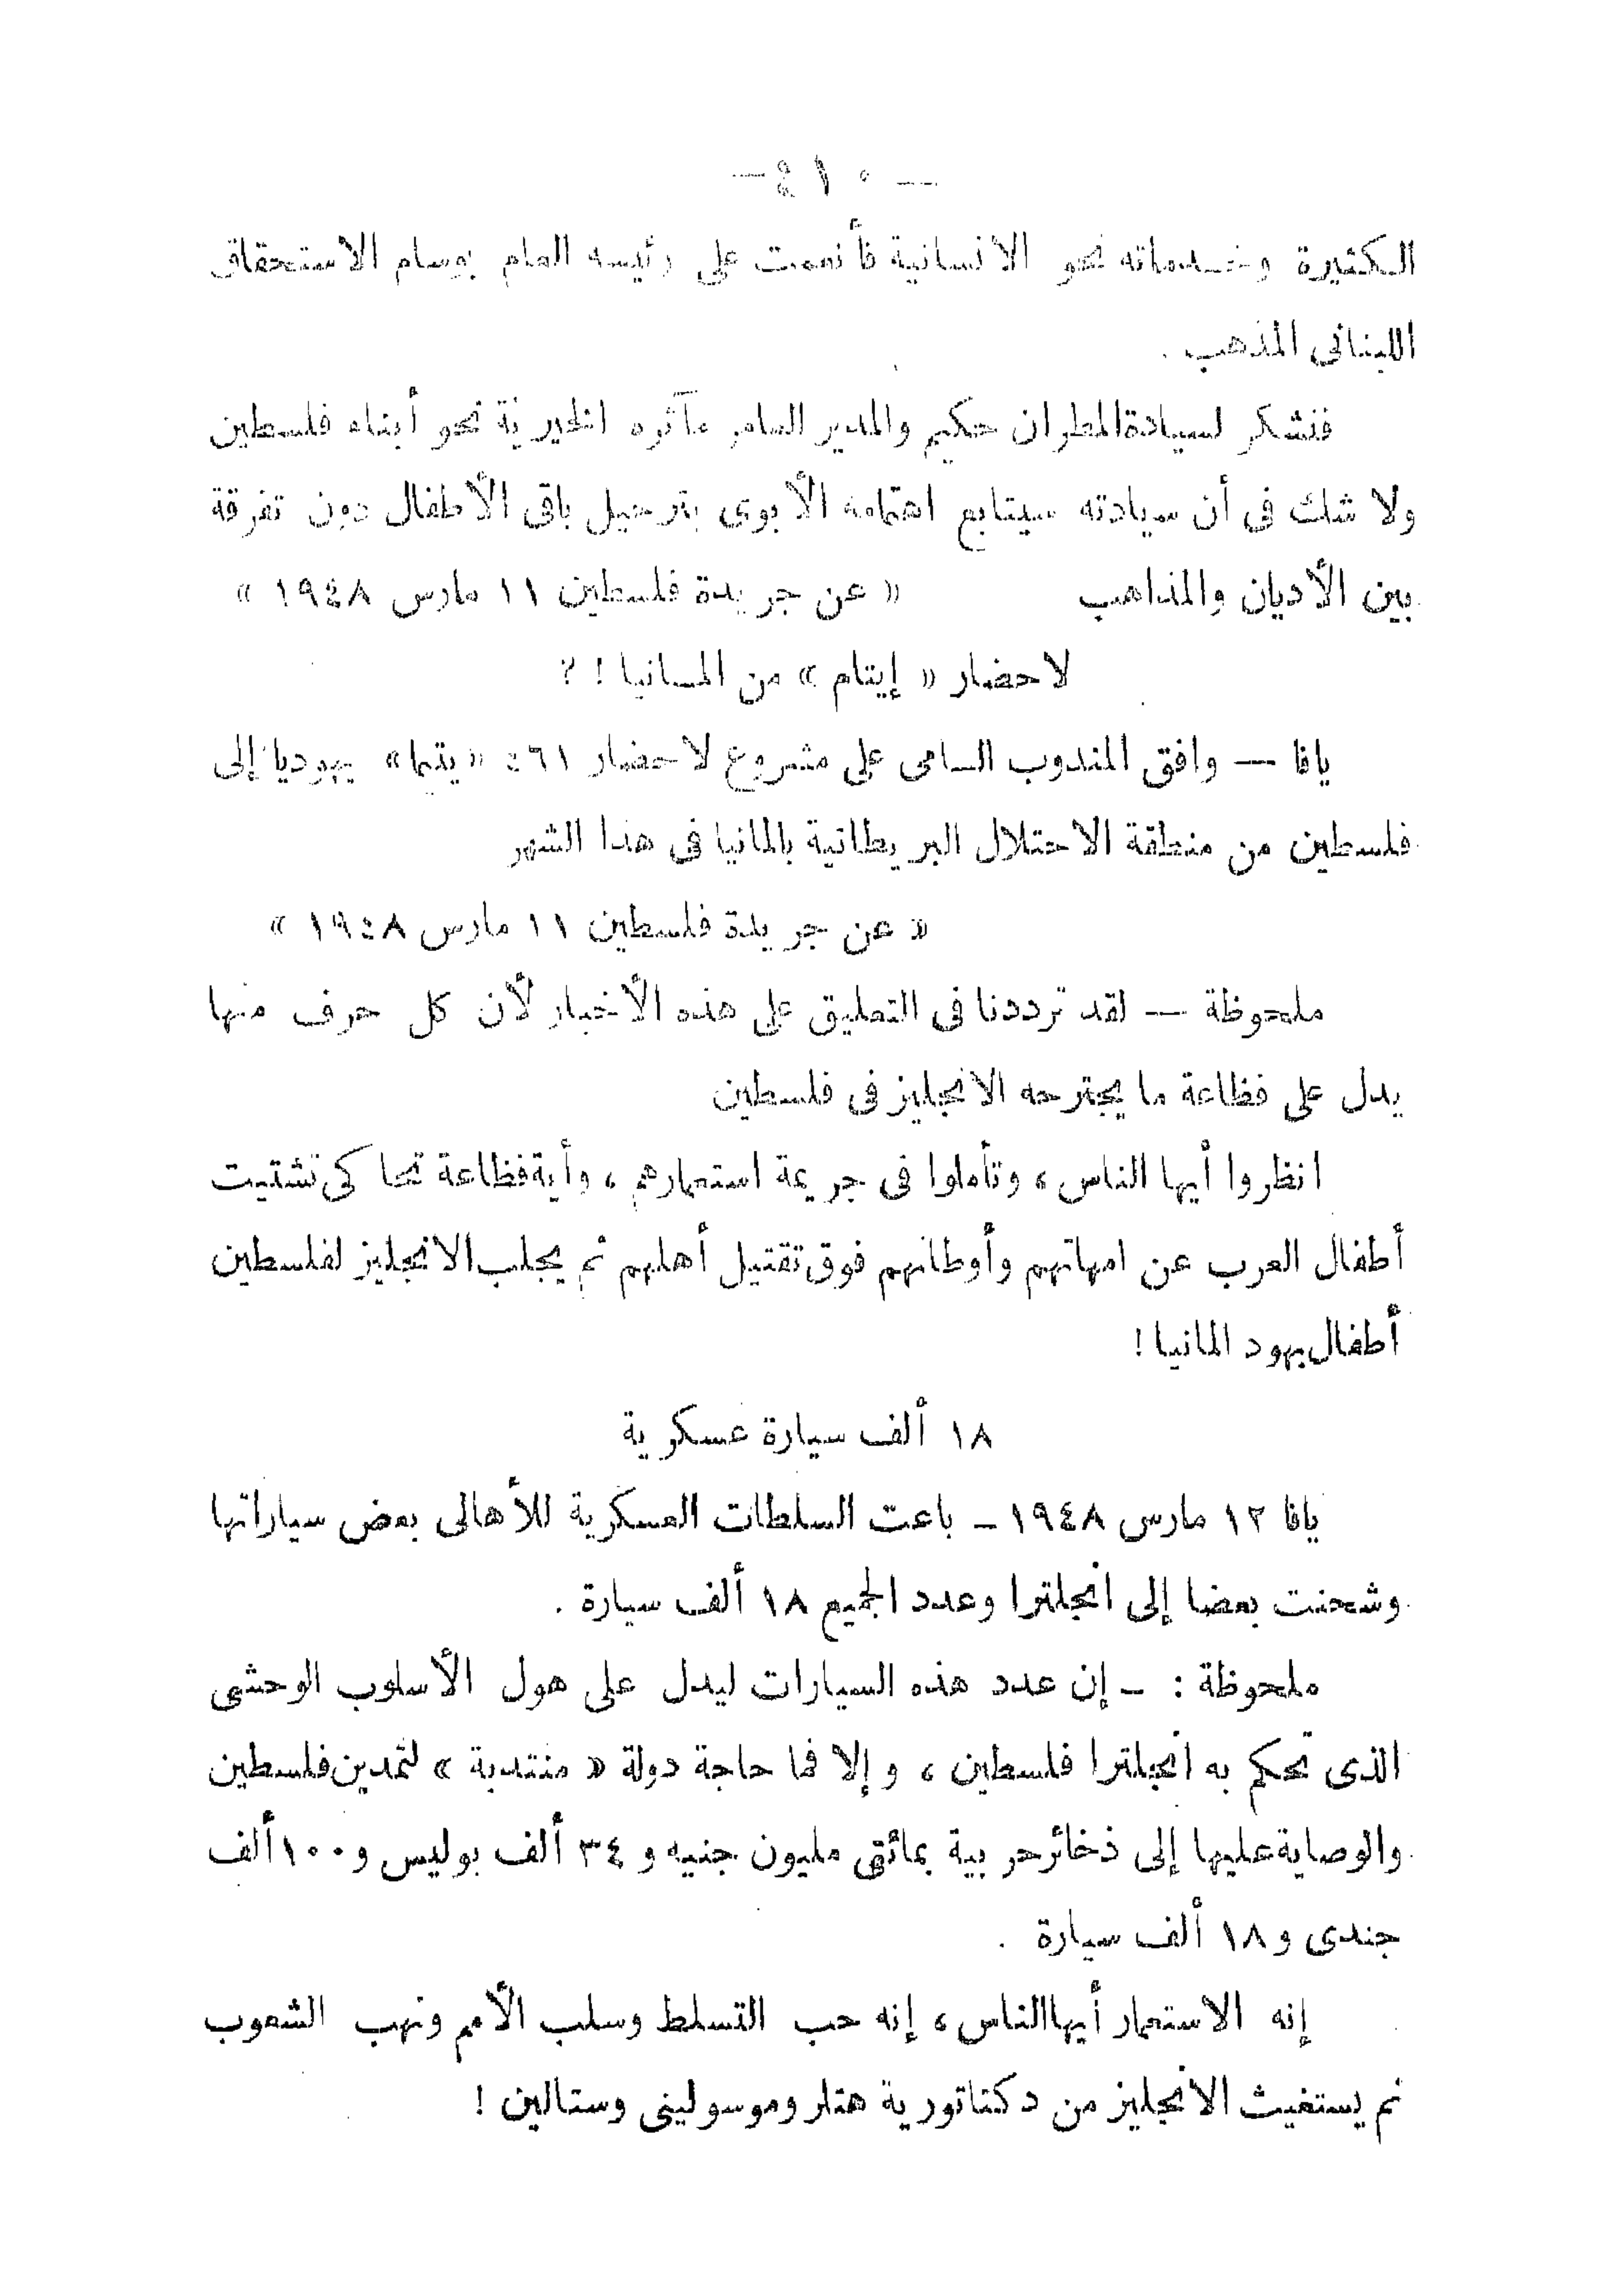 — ٤١٠ —
الكثيرة وخدماته نحو الانسانية فأنعمت على رئيسه العام بوسام الاستحقاق
اللبنانى المذهب .
فنشكر لسيادة المطران حكيم والمدير العام مآثره الخيرية نحو أبناء فلسطين
ولا شك فى أن سيادته سيتابع اهتمامه الأبوى بترحيل باقى الأطفال دون تفرقة
بين الأديان والمذاهب « عن جريدة فلسطين ١١ مارس ١٩٤٨ »
لاحضار « إيتام » من المانيا ! ؟
يافا — وافق المندوب السامى على مشروع لاحضار ٤٦١ «يتيما» يهوديا إلى
فلسطين من منطقة الاحتلال البريطانية بالمانيا فى هذا الشهر
« عن جريدة فلسطين ١١ مارس ١٩٤٨ »
ملحوظة — لقد ترددنا فى التعليق على هذه الأخبار لأن كل حرف منها
يدل على فظاعة ما يجترحه الانجليز فى فلسطين
انظروا أيها الناس ، وتأملوا فى جريمة استعمارهم ، وأية فظاعة تحاكى تشتيت
أطفال العرب عن امهاتهم وأوطانهم فوق تقتيل أهليهم ثم يجلب الانجليز لفلسطين
أطفال يهود المانيا !
١٨ ألف سيارة عسكرية
يافا ١٢ مارس ١٩٤٨ – باعت السلطات العسكرية للأهالى بعض سياراتها
وشحنت بعضا إلى انجلترا وعدد الجميع ١٨ ألف سيارة .
ملحوظة : – إن عدد هذه السيارات ليدل على هول الأسلوب الوحشى
الذى تحكم به انجلترا فلسطين ، وإلا فما حاجة دولة « منتدبة » لتمدين فلسطين
والوصاية عليها إلى ذخائر حربية بمائتى مليون جنيه و ٣٤ ألف بوليس و ١٠٠ ألف
جندى و ١٨ ألف سيارة .
إنه الاستعمار أيها الناس ، إنه حب التسلط وسلب الأمم ونهب الشعوب
ثم يستغيث الانجليز من دكتاتورية هتلر وموسولينى وستالين !